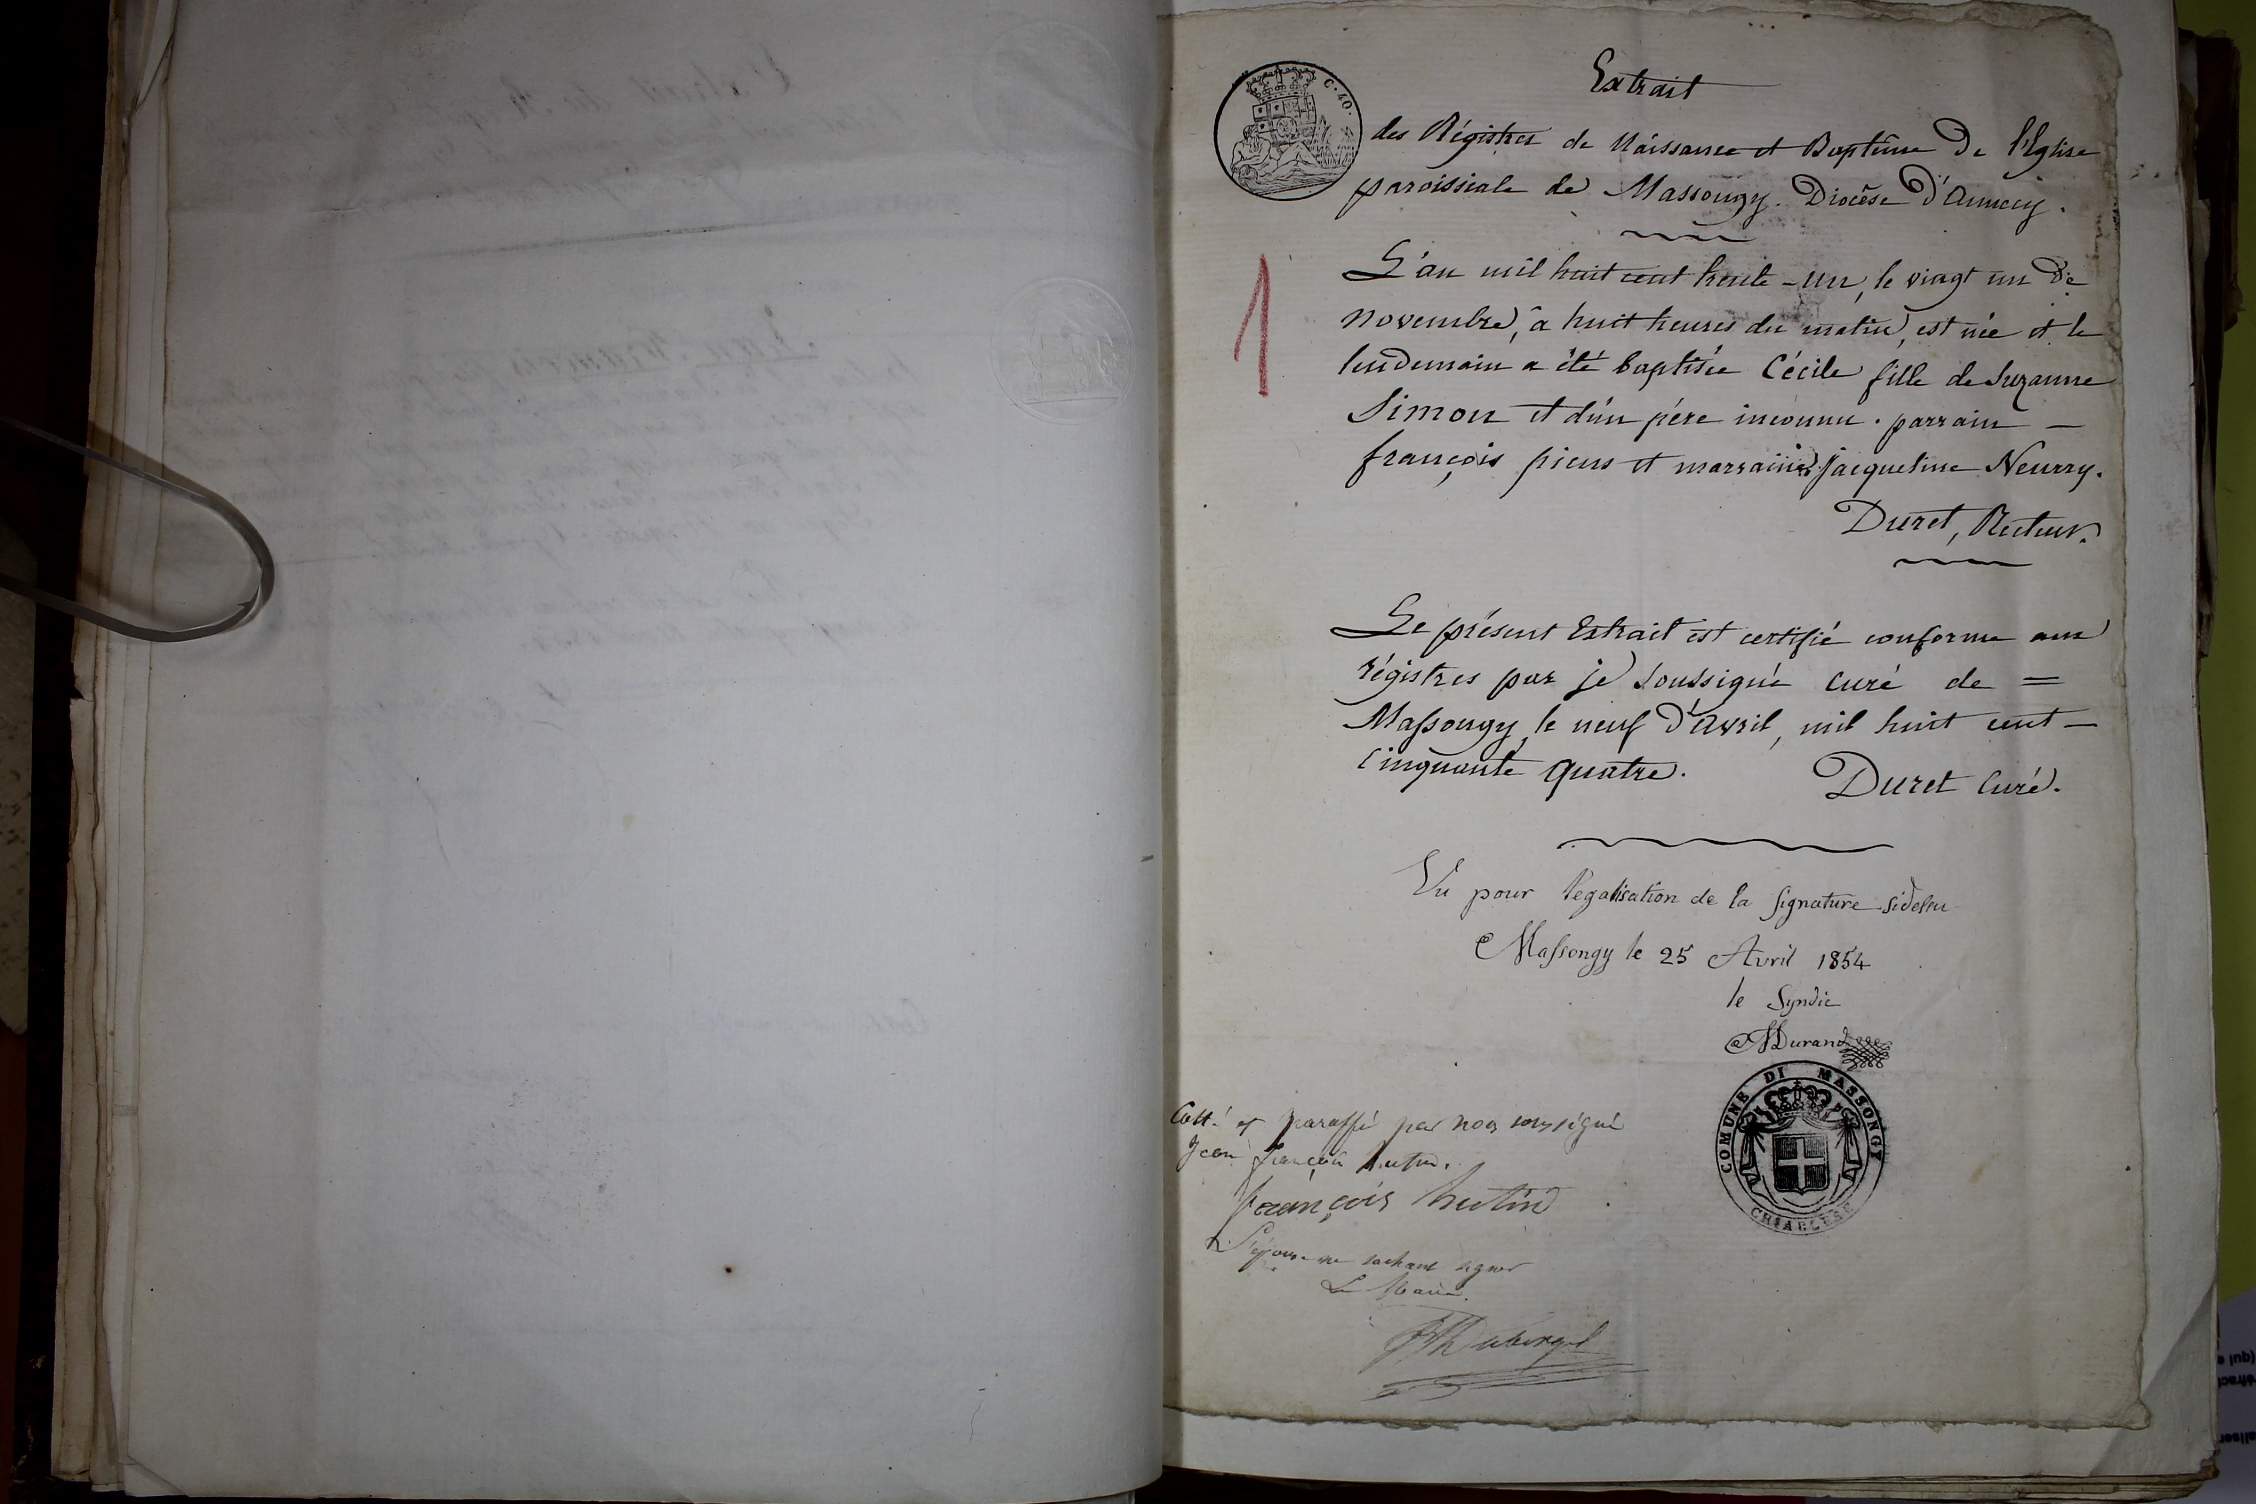 Extrait
C. 40.
des Régistres de Naissance et Baptême De l'Eglise
paroissiale de Massongy. Diocèse D'Annecy.
1
L'an mil huit cent trente-un, le vingt un De
novembre, à huit heures du matin, est née et le
lendemain a été baptisée Cécile fille de Suzanne
Simon et d'un père inconnu. parrain —
françois picus et marraine jacqueline Neurry.
Duret, Recteur.
Le présent Extrait est certifié conforme aux
régistres par je soussigné curé de =
Massongy, le neuf D'avril, mil huit cent —
cinquante quatre. Duret Curé.
Vu pour légalisation de la signature
Massongy le 25 Avril 1854
le Syndic
Durand
COMUNE DI MASSONGY
CHIABLESE
Cotté et paraffé par nous soussigné
Jean françois hutin.
françois hutin
L'épouse ne sachant signer
Le Maire.